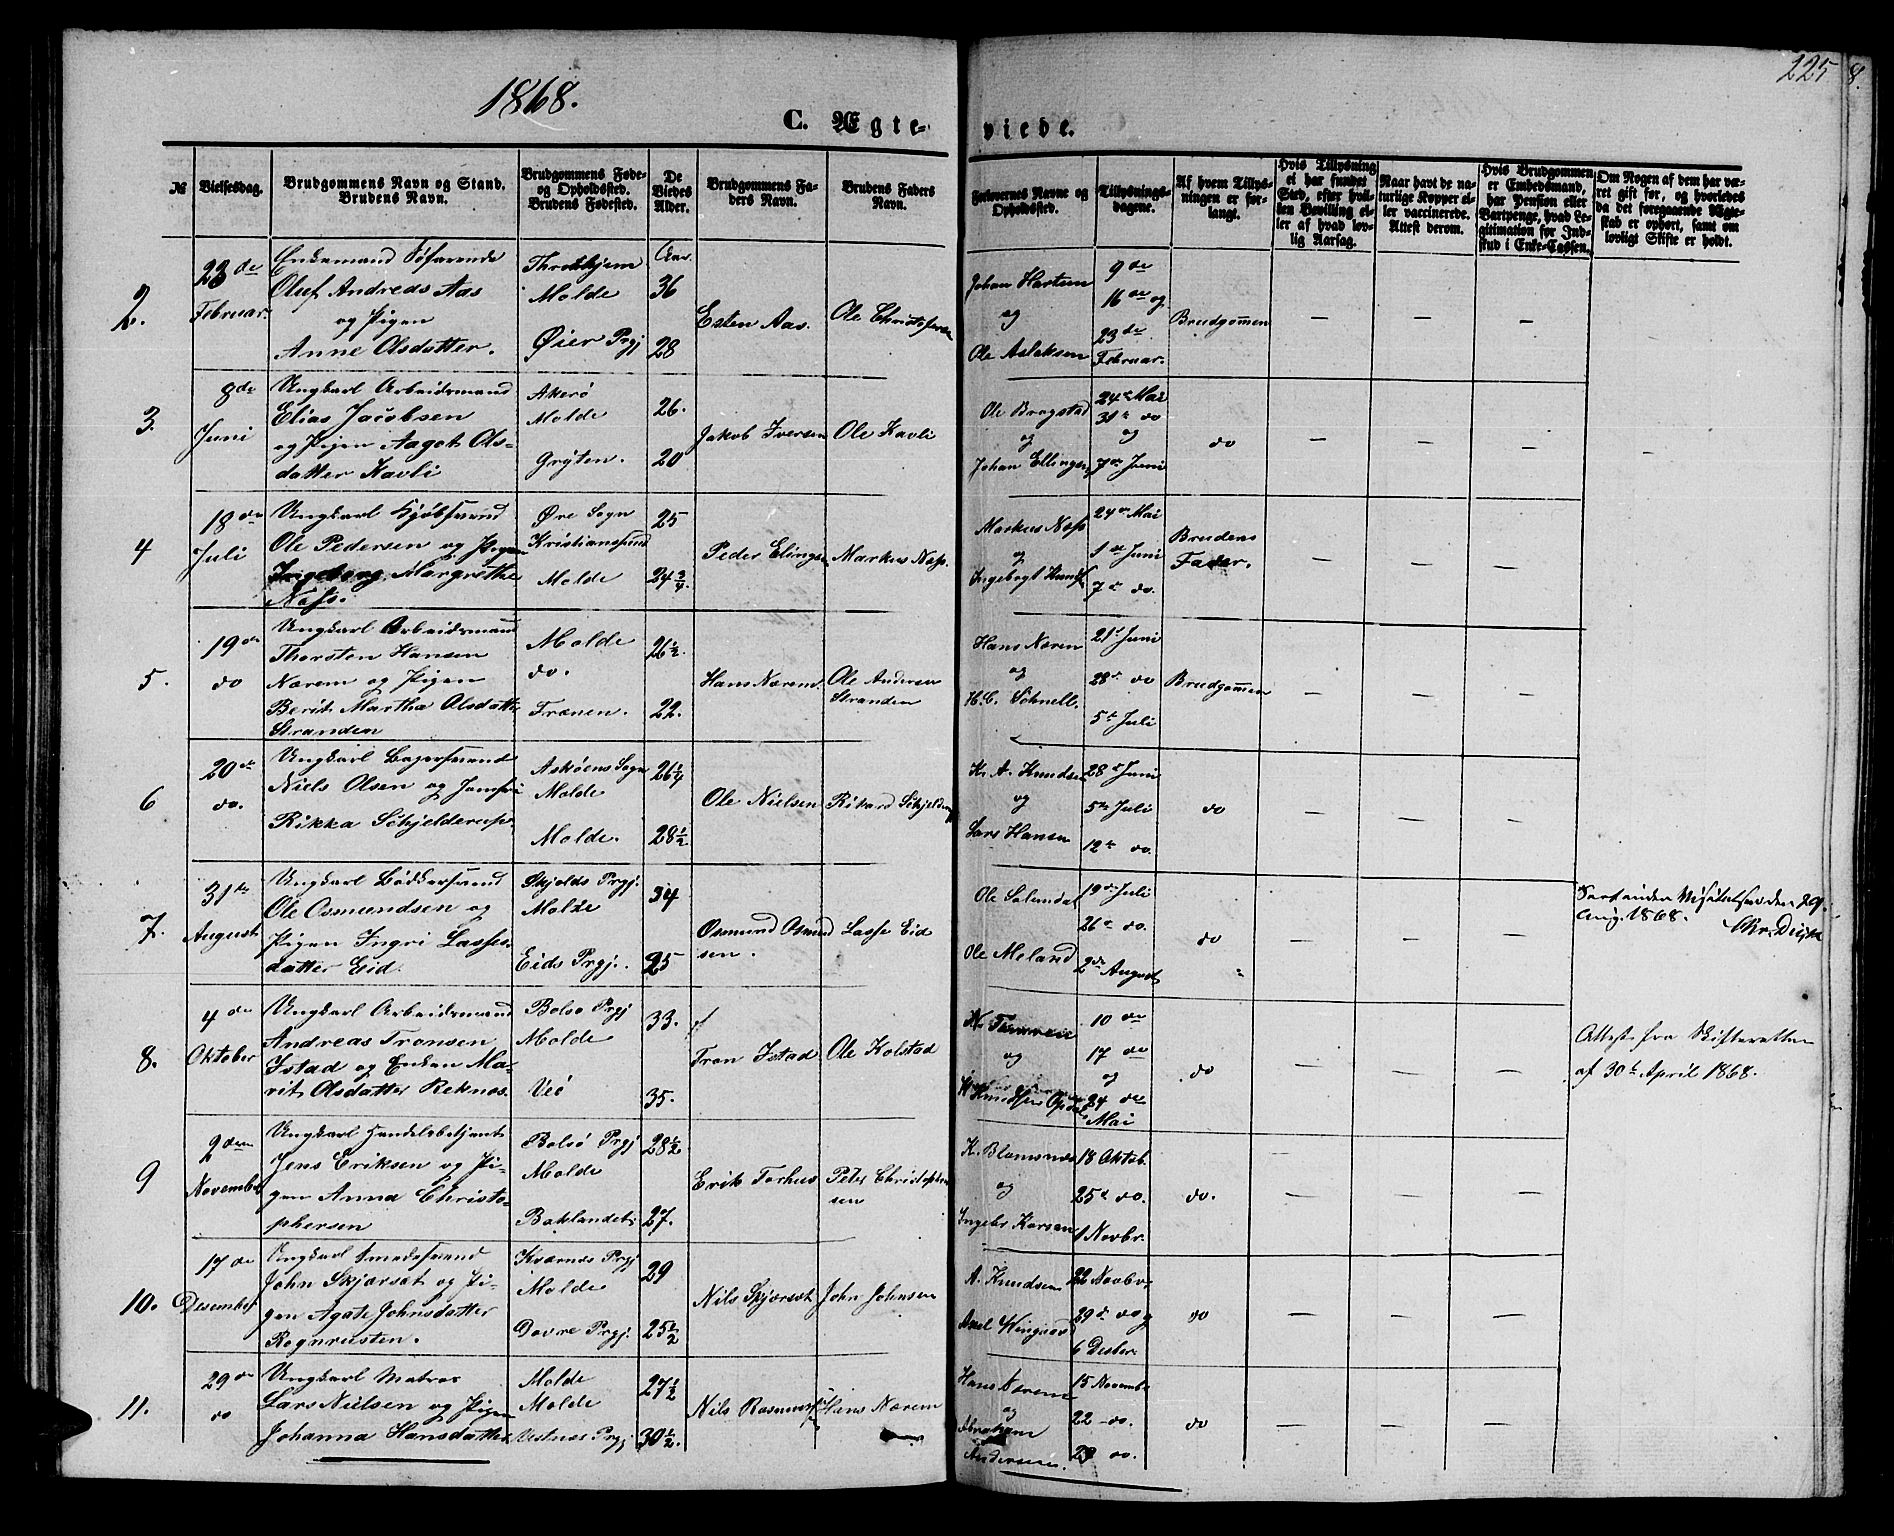 1868.
225
8.
C. Ægte-
viede.
№
Vielsesdag.
Brudgommens Navn og Stand.
Brudens Navn.
Brudgommens Føde-
og Opholdssted.
Brudens Fødested.
De
Viedes
Alder.
Brudgommens Fa-
ders Navn.
Brudens Faders
Navn.
Forlovernes Navne og
Opholdssted.
Tillysnings-
dagene.
Af hvem Tillys-
ningen er for-
langt.
Hvis Tillysning
ei har fundet
Sted, efter hvil-
ken Bevilling el-
ler af hvad lov-
lig Aarsag.
Naar havt de na-
turlige Kopper el-
ler vaccinerede.
Attest derom.
Hvis Brudgommen
er Embedsmand,
har Pension eller
Vartpenge, hvad Le-
gitimation for Ind-
skud i Enke-Cassen.
Om Nogen af dem har væ-
ret gift før, og hvorledes
da det foregaaende Ægte-
skab er ophørt, samt om
lovligt Skifte er holdt.
2.
23 de
Februar.
Enkemand Søfarende
Oluf Andreas Aas
og Pigen
Anne Olsdatter.
Throndhjem
Molde
Øier Prgj
Aar.
36
28
Esten Aas.
Ole Christofersen
Johan Hartum
og
Ole Aslaksen
9 de
16 de og
23 de
Februar.
Brudgommen
3.
8 de
Juni
Ungkarl Arbeidsmand
Elias Jacobsen
og Pigen Aagot Ols-
datter Kavli
Akerø
Molde
Grytten.
26.
20
Jakob Iversen
Ole Kavli
Ole Bragstad
og
Johan Ellingsen
24 de Mai
31 te do
og
7 de Juni
do
4
18 de
Juli
Ungkarl Kjøbsvend
Ole Pedersen og Pigen
Ingeborg Margrethe
Næss.
Øre Sogn
Kristianssund
Molde
25
24 3/4.
Peder Elingsen
Markus Næss.
Markus Næss
og
Ingebrgt Knuds
24 de Mai
1 ste Juni
7 de do.
Brudens
Fader.
5.
19 de
do
Ungkarl Arbeidsmand
Thorsten Hansen
Nærem og Pigen
Berit Martha Olsdatter
Stranden
Molde
do.
Frænen.
26½.
22.
Hans Nærem.
Ole Andersen
Stranden
Hans Næren
og
H. C. Schnell.
21 de Juni
28 de do
5 te Juli
Brudgommen
6
20 de
do.
Ungkarl Bagersvend
Niels Olsen og Jomfru
Rikka Schjelderup.
Askøens Sogn
Molde
Molde.
26¼
28½
Ole Nielsen
Rikard Schjelderup
K. A. Knudsen
og
Lars Hansen
28 de Juni
5 te Juli
12 te do.
do
7.
31 te
August
Ungkarl Bødkersvend
Ole Osmundsen og
Pigen Ingri Lasses-
datter Eid.
Skjolds Prgj.
Molde
Eids Prgj.
34
25
Osmund Osmund
sen.
Lasse Eid
Ole Solemdal
Ole Meland
19 de Juli
26 de do.
2 de August
do
29.
Aug. 1868.
8.
4 de
Oktober
Ungkarl Arbeidsmand
Andreas Tronsen
Istad og Enken Ma-
rit Olsdatter Reknæs.
Bolsø Prgj
Molde
Veø
33.
35.
Tron Istad
Ole Kolstad
og
10 de
17 de
og
24 de
Mai
do
Attest fra Skifteretten
af 30 te April 1868.
9
2 den
November
Ungkarl Handelsbetjent
Jens Eriksen og Pi-
gen Anna Christo-
phersen
Bolsø Prgj
Molde
Baklandet.
28½
27.
Erik Torhus
Peter Christophe
sen
K. Blomsnæs
og
Ingebr Karsen
18 Oktob.
25 de do.
1 Novbr.
do.
10.
17 de
Desember
Ungkarl Smedsvend
John Skjærsæt og Pi-
gen Agate Johnsdatter
Rognrusten.
Kvernes Prgj
Molde
Dovre Prgj.
29
25½
Nils Skjærsæt
John Johnsen
A. Knudsen
Axel Wingaard
22 Novbr.
29 de do og
6 Desbr.
do
11.
29 de
do
Ungkarl Matros
Lars Nielsen og Pigen
Johanna Hansdatter
Molde
Molde
Vestnes Prgj
27½
30½.
Nils Rasmussen
Hans Nærem
Hans Nærem
og
Abraham
Andersen.
15 Novemb.
22 - do.
29 do.
do